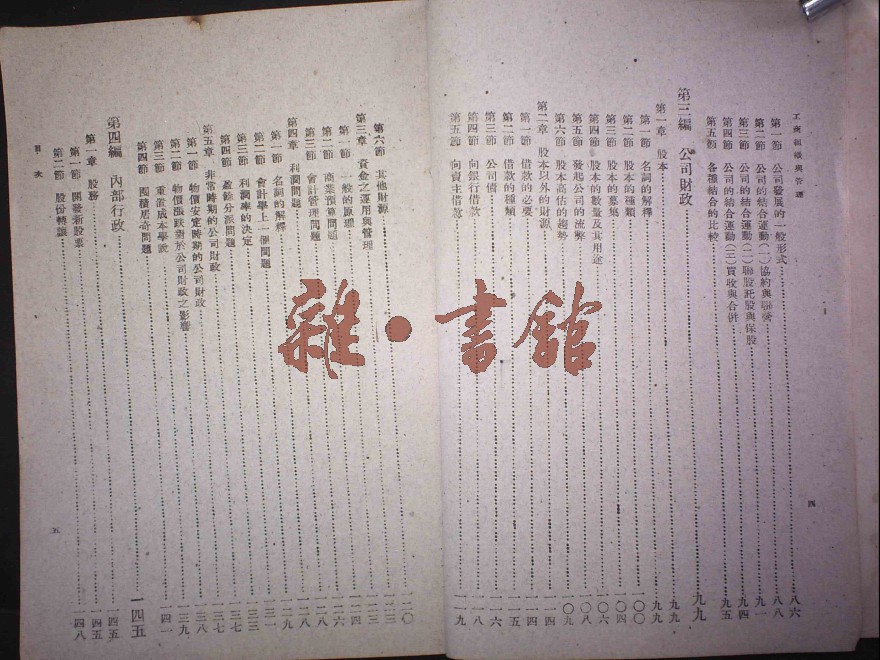 工商組織與管理
第一節 公司發展的一般形式 八六
第二節 公司的結合運動(一)協約與聯營 八八
第三節 公司的結合運動(二)聯股託股與保股 九一
第四節 公司的結合運動(三)買收與合併 九四
第五節 各種結合的比較 九五
第三編 公司財政 九九
第一章 股本 九九
第一節 名詞的解釋 九九
第二節 股本的種類 一〇〇
第三節 股本的募集 一〇四
第四節 股本的數量及其用途 一〇六
第五節 發起公司的流弊 一〇八
第六節 股本高估的趨勢 一〇九
第二章 股本以外的財源 一一四
第一節 借款的必要 一一四
第二節 借款的種類 一一五
第三節 公司債 一一六
第四節 向銀行借款 一一八
第五節 向資主借款 一一九
四
第六節 其他財源 一二〇
第三章 資金之運用與管理 一二三
第一節 一般的原理 一二三
第二節 商業預算問題 一二四
第三節 會計管理問題 一二六
第四章 利潤問題 一二八
第一節 名詞的解釋 一二八
第二節 會計學上一個問題 一二九
第三節 利潤率的決定 一三一
第四節 盈餘分派問題 一三三
第五章 非常時期的公司財政 一三七
第一節 物價安定時期的公司財政 一三七
第二節 物價漲跌對於公司財政之影響 一三八
第三節 重置成本學說 一三九
第四節 囤積居奇問題 一四一
第四編 內部行政 一四五
第一章 股務 一四五
第一節 開發新股票 一四五
第二節 股份轉讓 一四八
目次
五
雜·書館